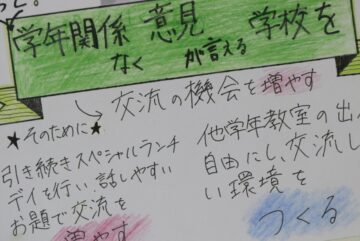 学年関係なく 意見が言える 学校を
交流の機会を増やす
★そのために★
引き続きスペシャルランチ
デイを行い、話しやすい
お題で交流を
増やす
他学年教室の出
自由にし、交流し
い環境を
つくる